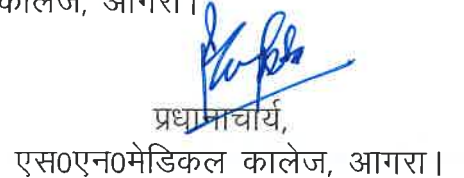 कालेज, आगरा।
प्रधानाचार्य,
एस0एन0मेडिकल कालेज, आगरा।